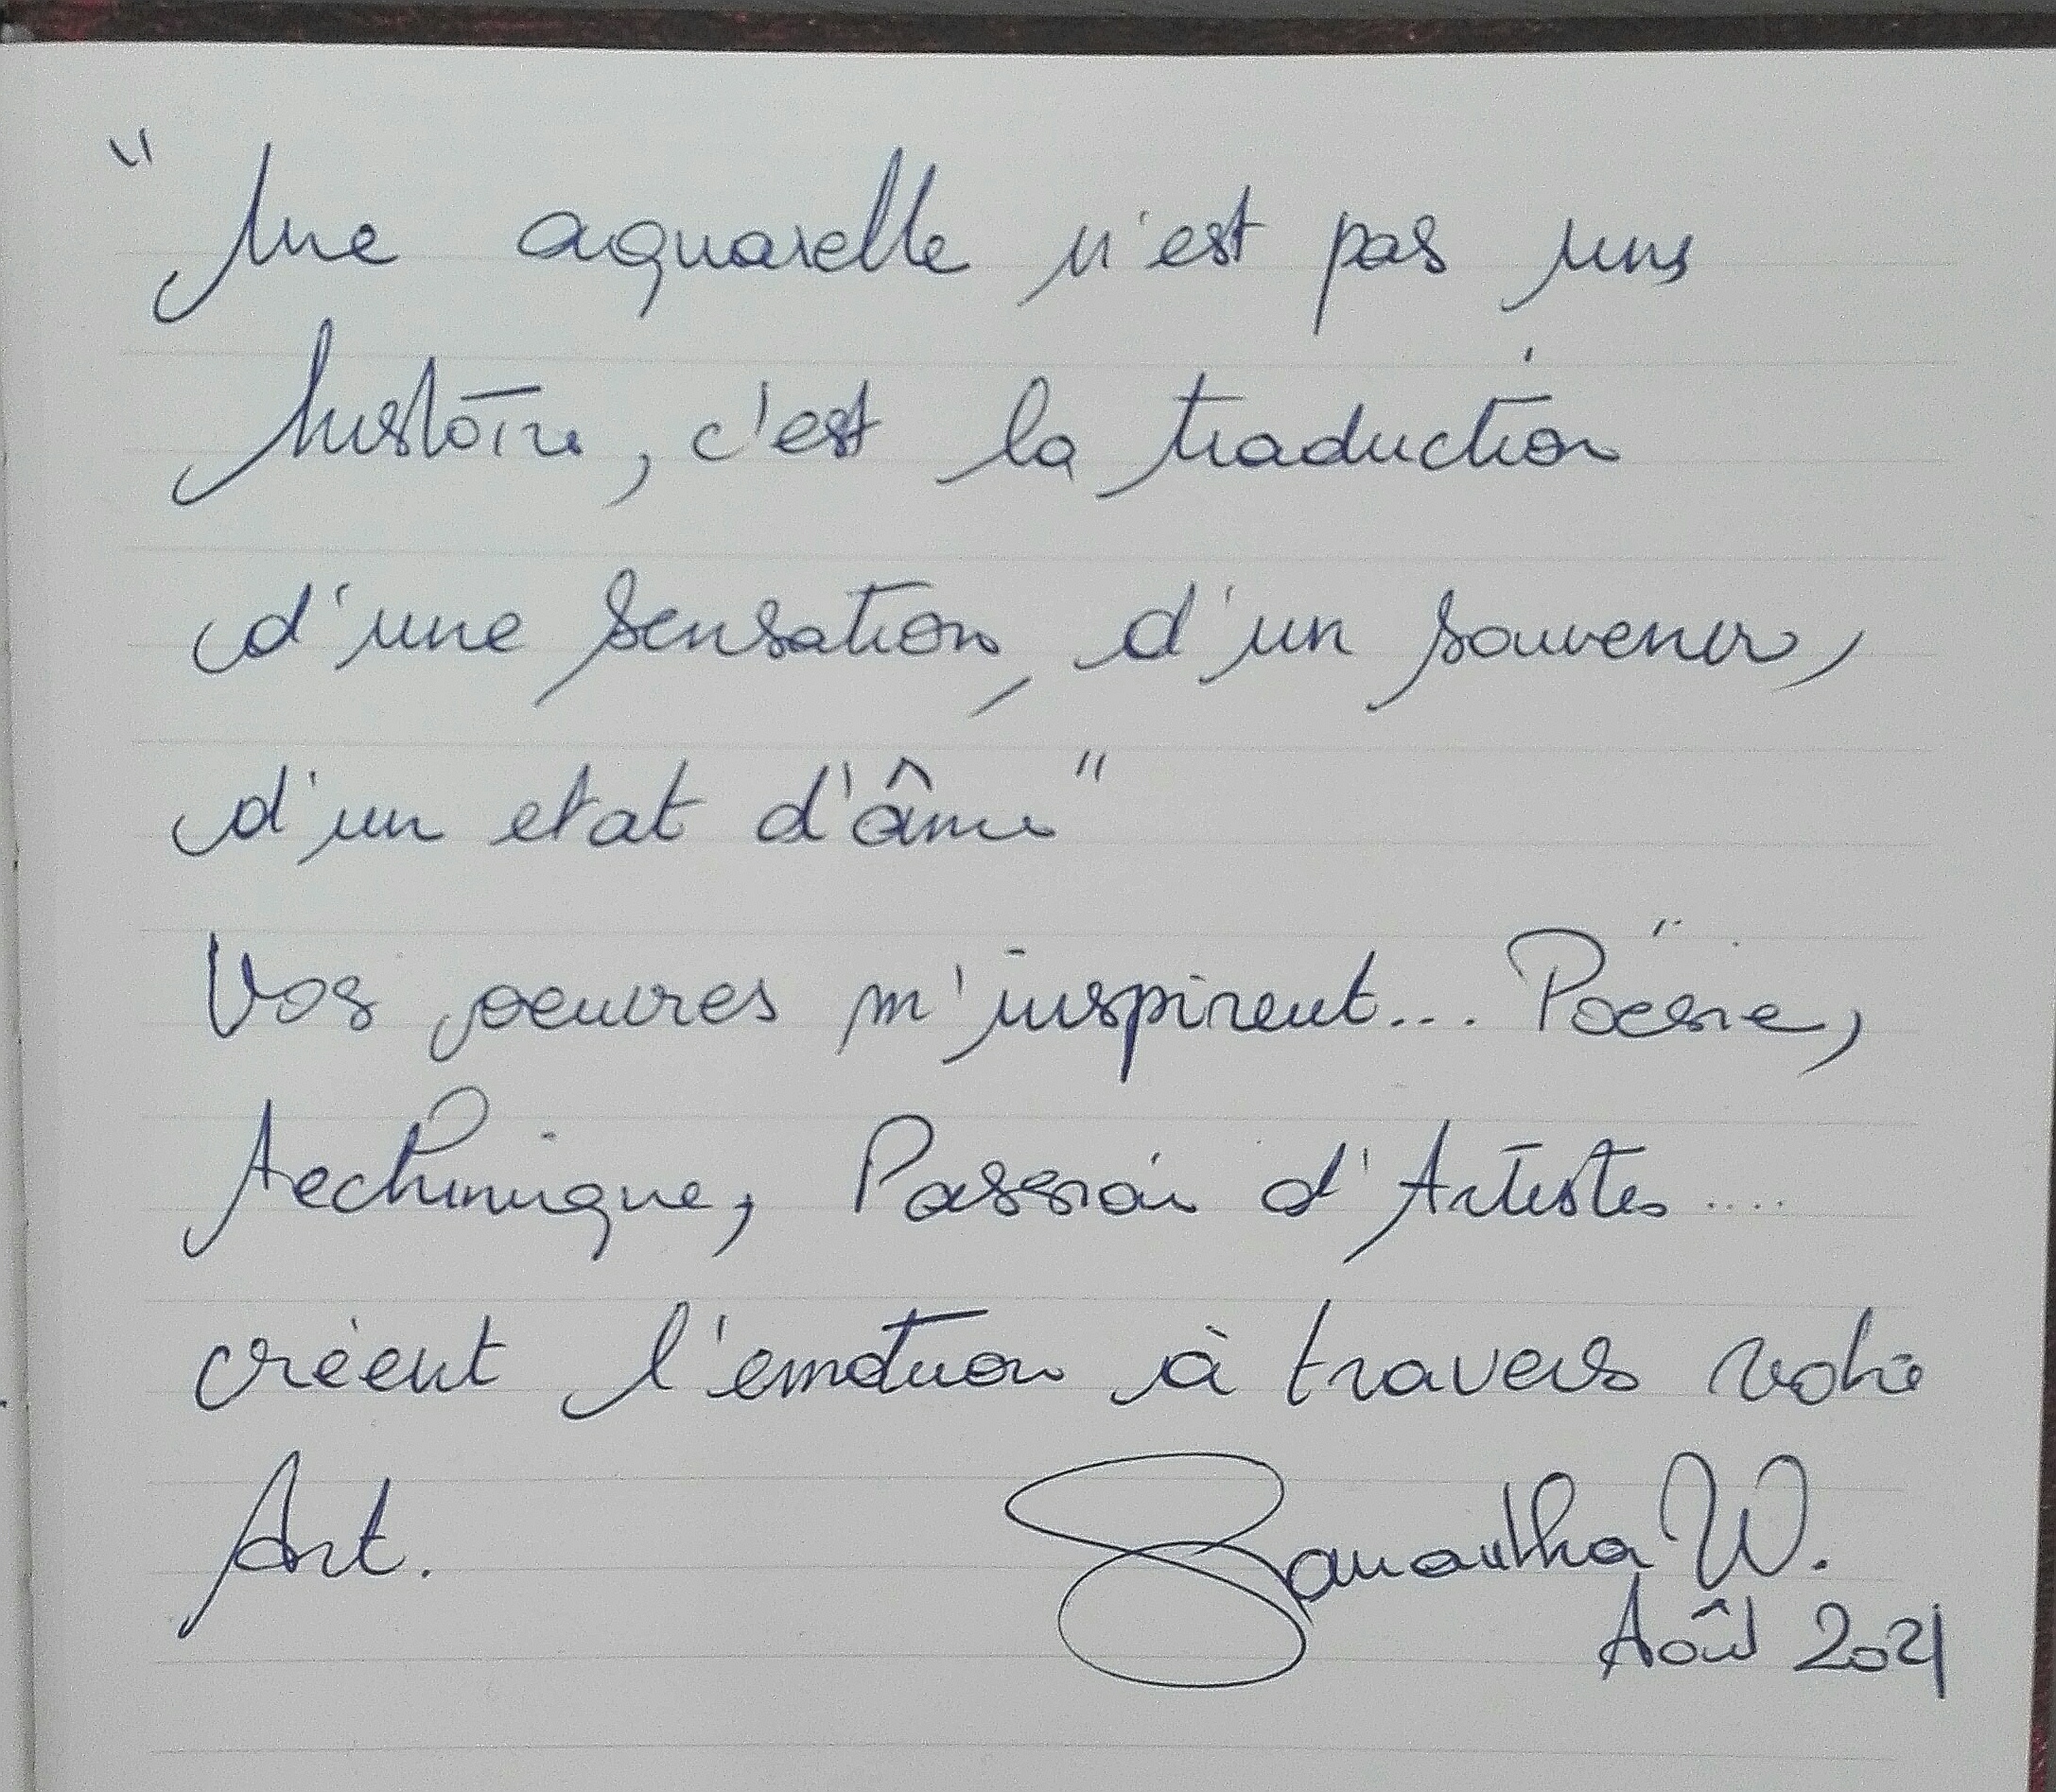 "Une aquarelle n'est pas une
histoire, c'est la traduction
d'une sensation, d'un souvenir,
d'un etat d'âme"
Vos oeuvres m'inspirent... Poësie,
techinique, Passion d'Artistes ....
créent l'emotion à travers votre
Art.
Samantha W.
Août 2021